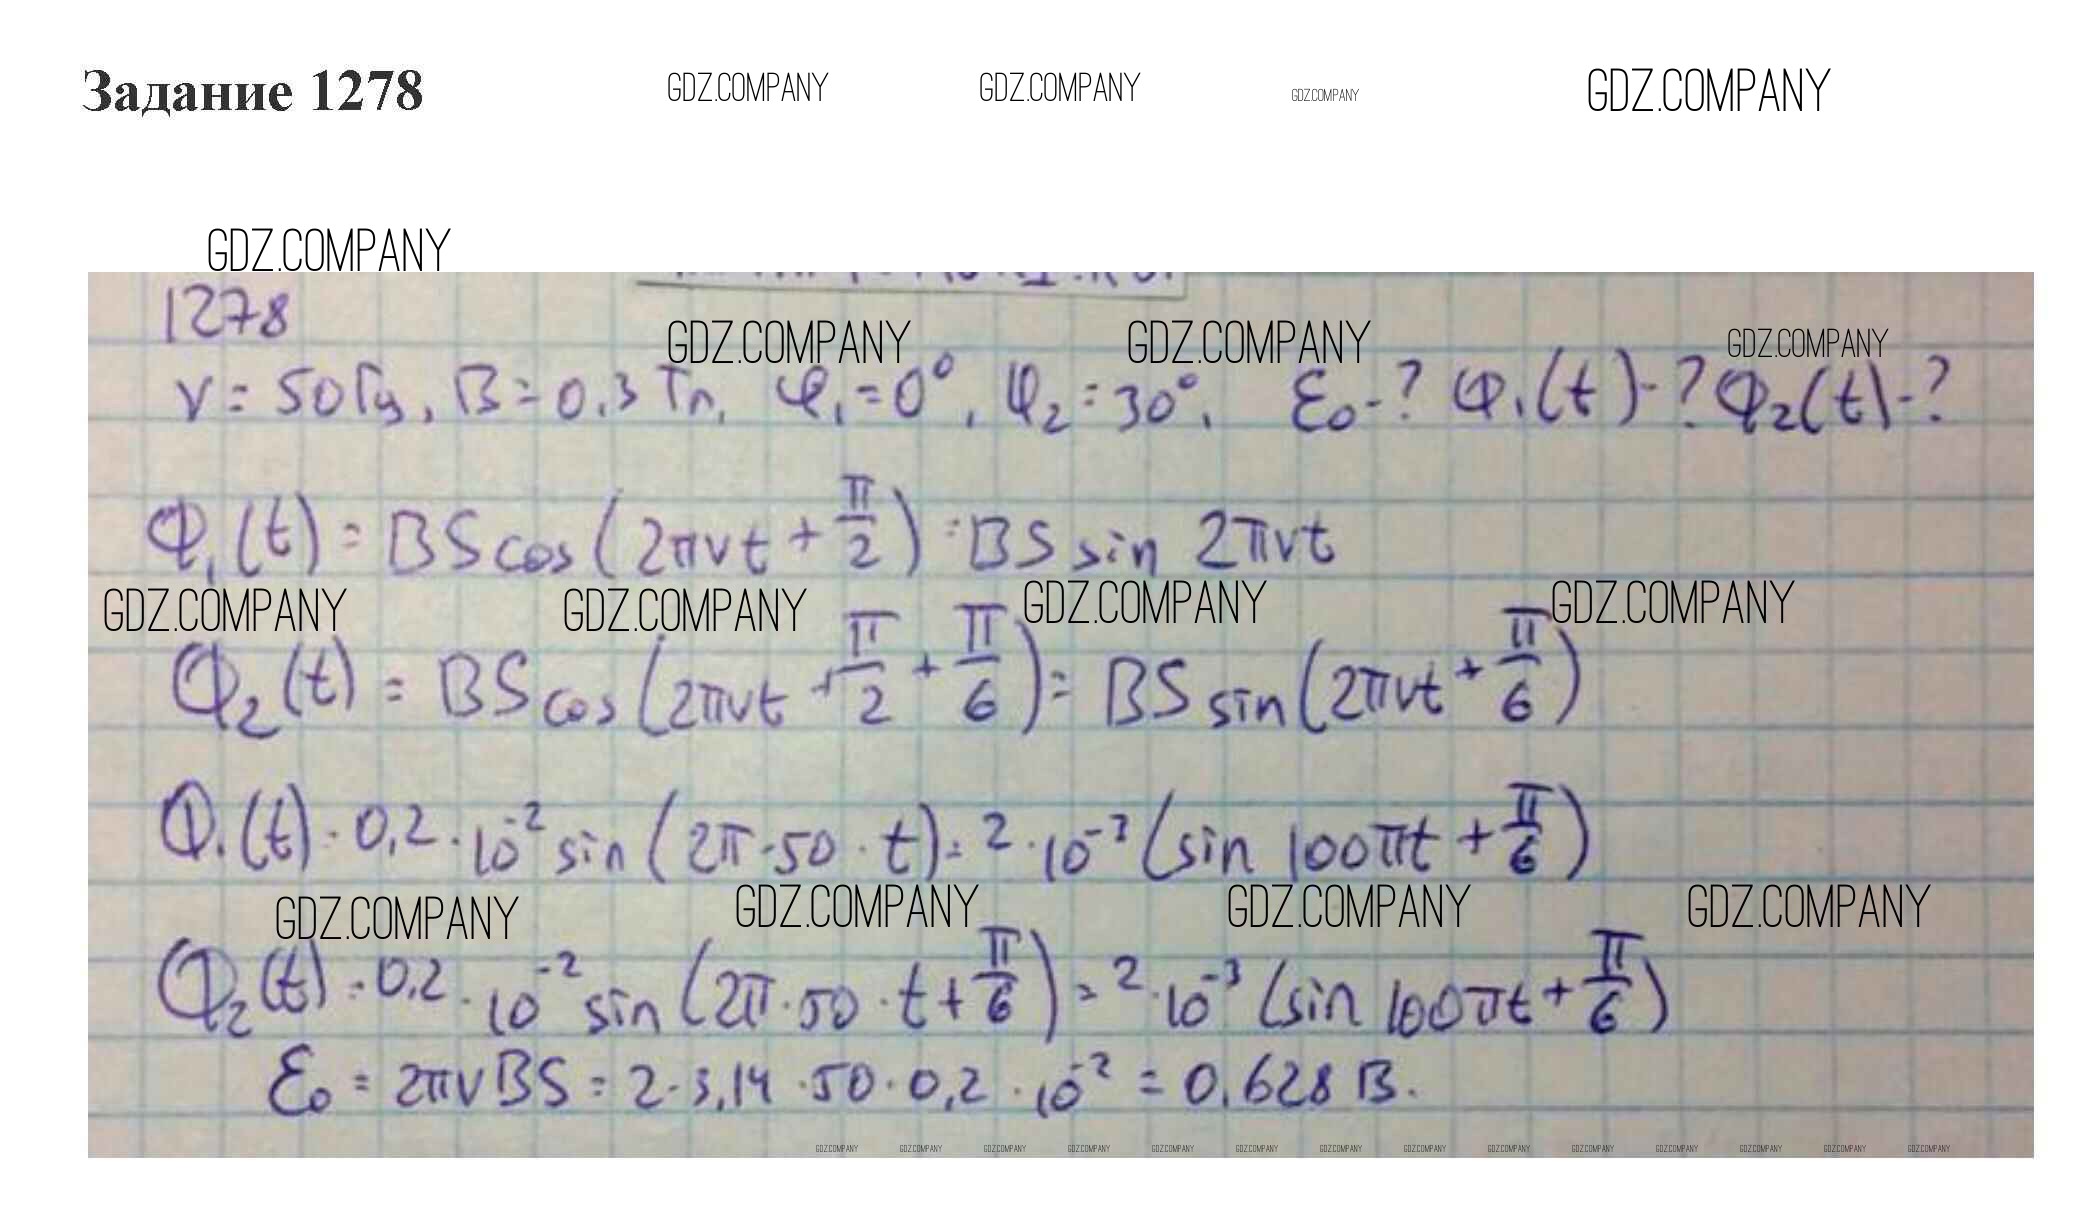 Задание 1278 GDZ.COMPANY GDZ.COMPANY GDZ.COMPANY GDZ.COMPANY
GDZ.COMPANY
1278
GDZ.COMPANY GDZ.COMPANY GDZ.COMPANY
ν = 50 Гц, B = 0,3 Тл, φ₁ = 0°, φ₂ = 30°. ε₀ - ? Φ₁(t) - ? Φ₂(t) - ?
Φ₁(t) = BS cos(2πνt + π/2) = BS sin 2πνt
GDZ.COMPANY GDZ.COMPANY GDZ.COMPANY GDZ.COMPANY
Φ₂(t) = BS cos(2πνt + π/2 + π/6) = BS sin(2πνt + π/6)
Φ₁(t) = 0,2 · 10⁻² sin(2π · 50 · t) = 2 · 10⁻³ (sin 100πt + π/6)
GDZ.COMPANY GDZ.COMPANY GDZ.COMPANY GDZ.COMPANY
Φ₂(t) = 0,2 · 10⁻² sin(2π · 50 · t + π/6) = 2 · 10⁻³ (sin 100πt + π/6)
ε₀ = 2πνBS = 2 · 3,14 · 50 · 0,2 · 10⁻² = 0,628 В.
GDZ.COMPANY GDZ.COMPANY GDZ.COMPANY GDZ.COMPANY GDZ.COMPANY GDZ.COMPANY GDZ.COMPANY GDZ.COMPANY GDZ.COMPANY GDZ.COMPANY GDZ.COMPANY GDZ.COMPANY GDZ.COMPANY GDZ.COMPANY